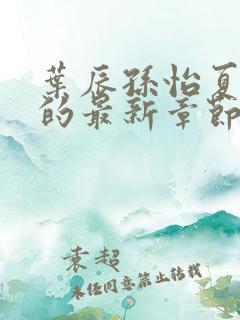 葉辰孫怡夏
的最新章節
袁超
未经同意禁止转载